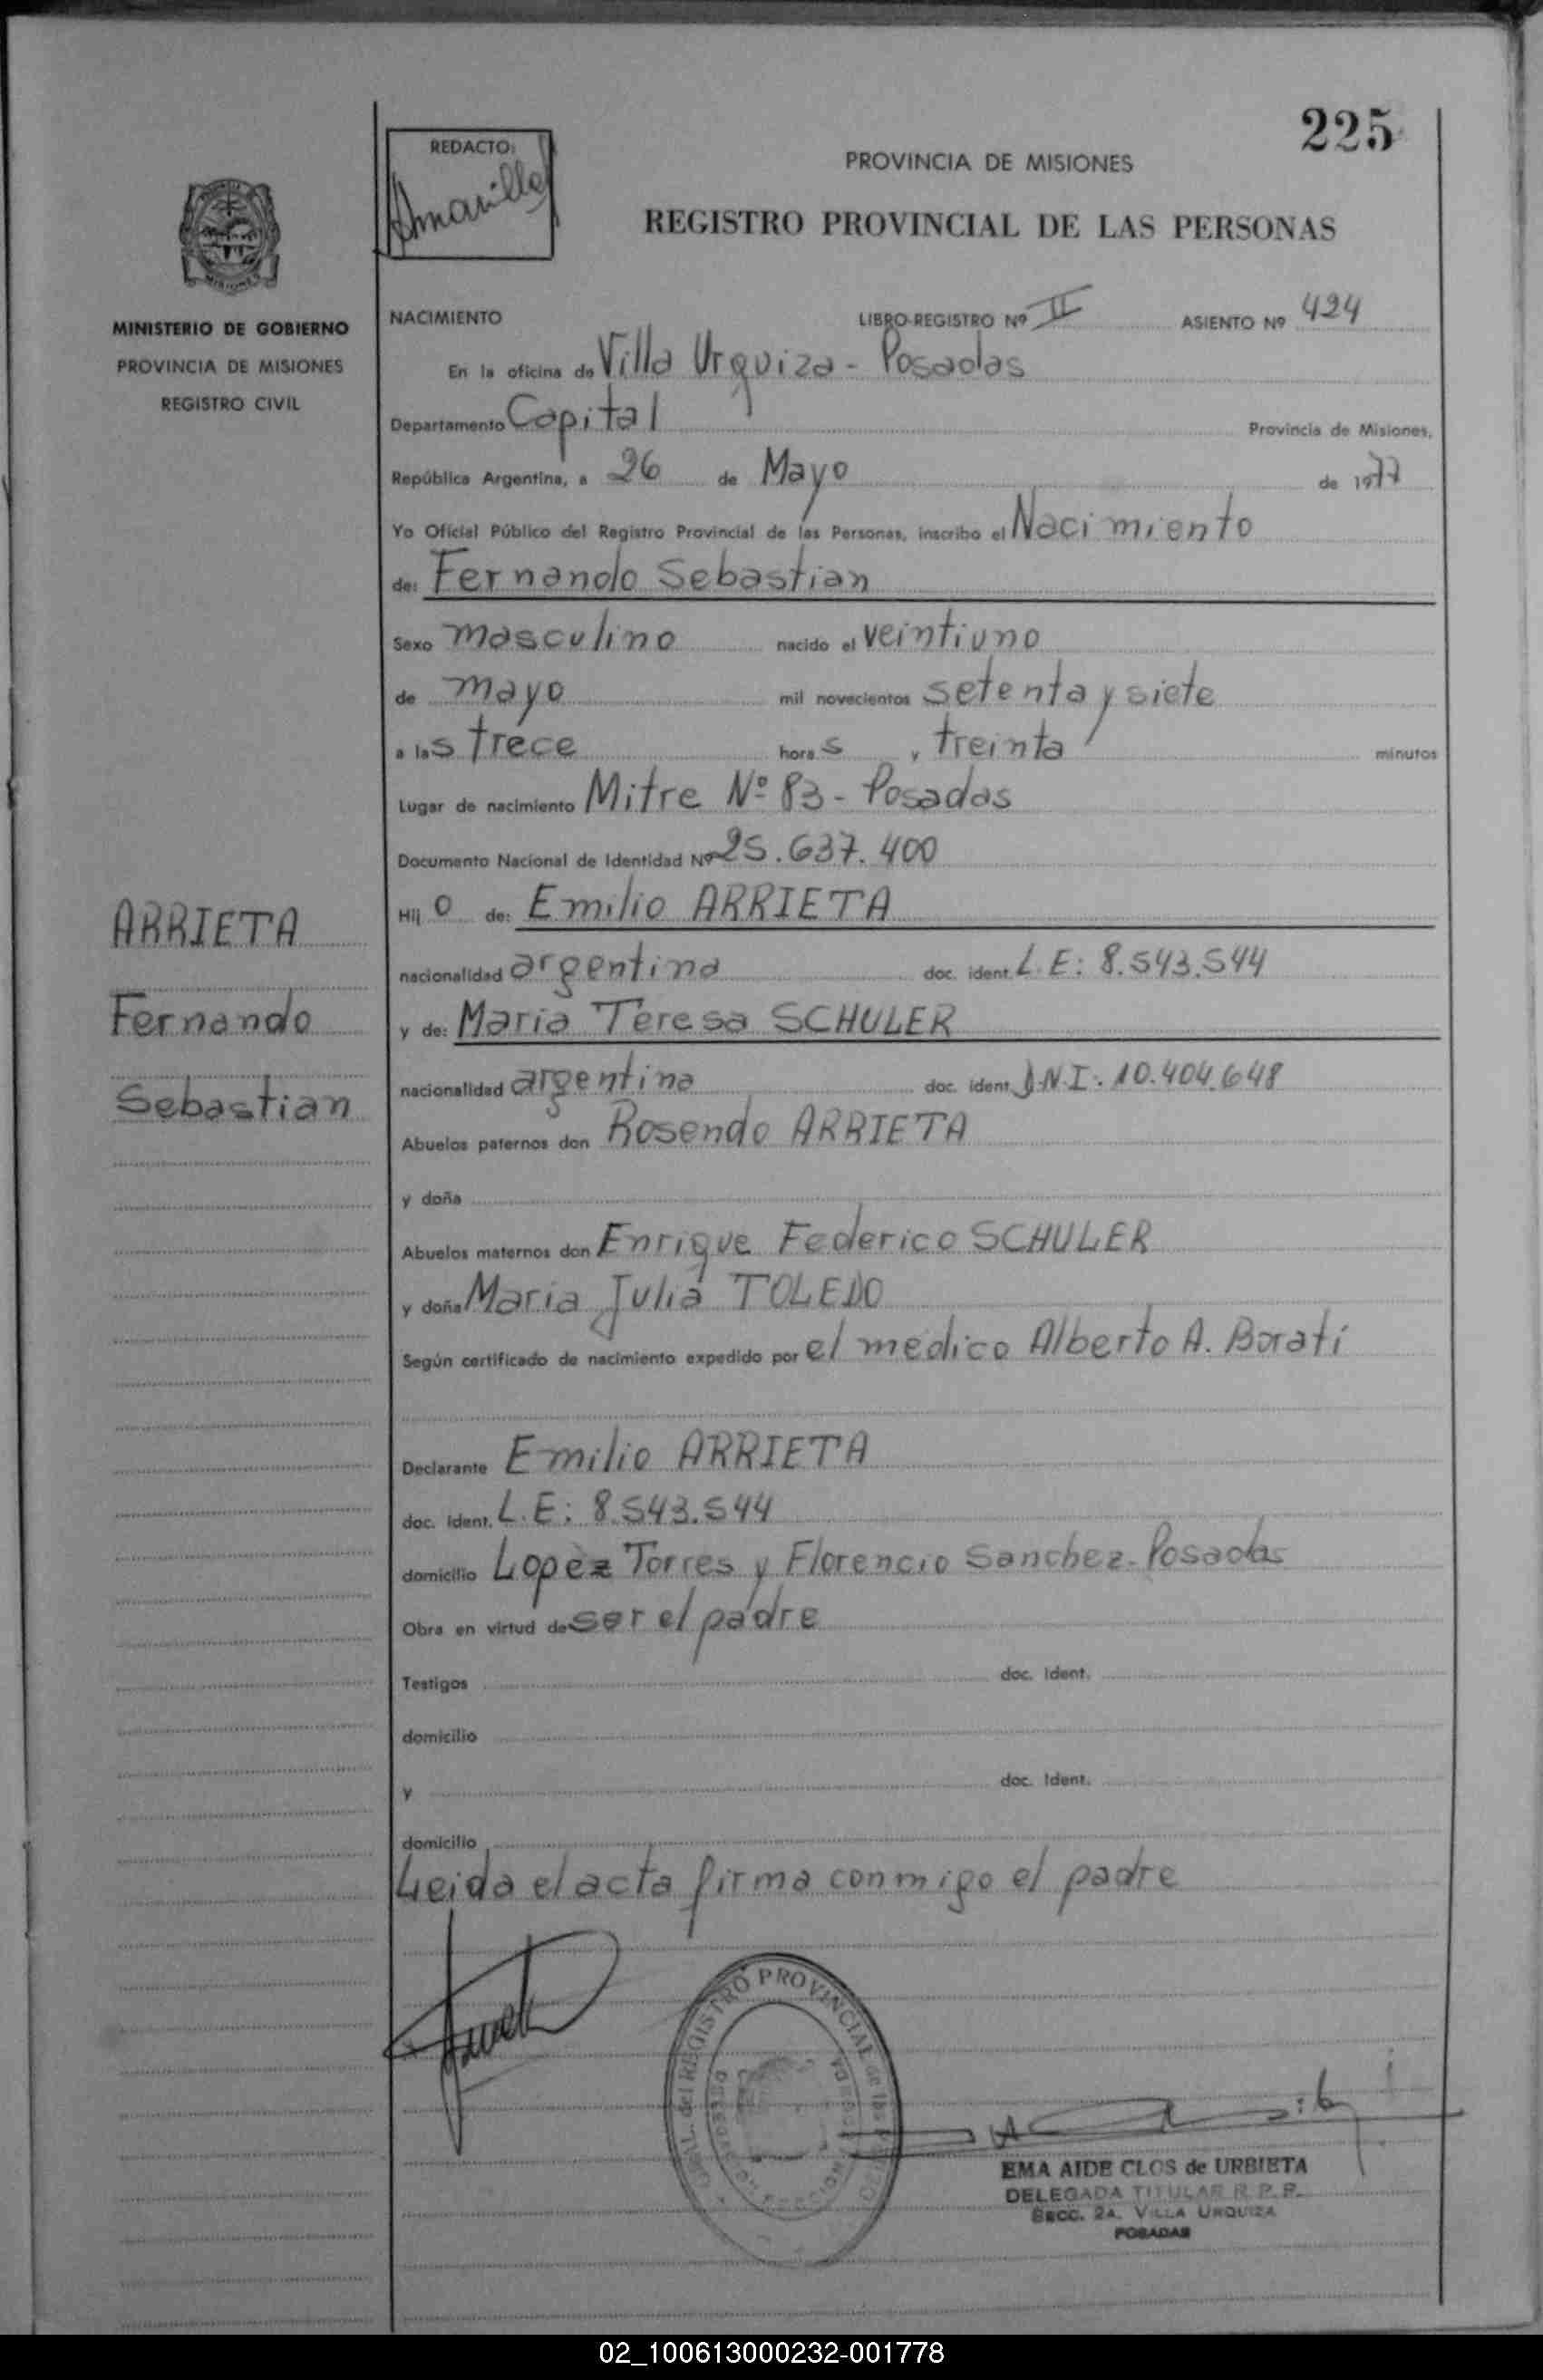 225
REDACTO:
Amarilla
PROVINCIA DE MISIONES
REGISTRO PROVINCIAL DE LAS PERSONAS
MISIONES
MINISTERIO DE GOBIERNO
PROVINCIA DE MISIONES
REGISTRO CIVIL
NACIMIENTO LIBRO-REGISTRO Nº II ASIENTO Nº 424
En la oficina de Villa Urquiza - Posadas
Departamento Capital Provincia de Misiones,
República Argentina, a 26 de Mayo de 1977
Yo Oficial Público del Registro Provincial de las Personas, inscribo el Nacimiento
de: Fernando Sebastian
Sexo masculino nacido el veintiuno
de mayo mil novecientos setenta y siete
a las trece horas y treinta minutos
Lugar de nacimiento Mitre Nº 83 - Posadas
Documento Nacional de Identidad Nº 25.637.400
ARRIETA
Fernando
Sebastian
Hijo de: Emilio ARRIETA
nacionalidad argentina doc. ident. L.E: 8.543.544
y de: Maria Teresa SCHULER
nacionalidad argentina doc. ident. D.N.I.: 10.404.648
Abuelos paternos don Rosendo ARRIETA
y doña
Abuelos maternos don Enrique Federico SCHULER
y doña Maria Julia TOLEDO
Según certificado de nacimiento expedido por el medico Alberto A. Borati
Declarante Emilio ARRIETA
doc. ident. L.E: 8.543.544
domicilio Lopez Torres y Florencio Sanchez - Posadas
Obra en virtud de ser el padre
Testigos doc. Ident.
domicilio
y doc. Ident.
domicilio
Leida el acta firma conmigo el padre
GRAL. del REGISTRO PROVINCIAL de las
EMA AIDE CLOS de URBIETA
DELEGADA TITULAR R. P. P.
SECC. 2A. VILLA URQUIZA
POSADAS
02_100613000232-001778